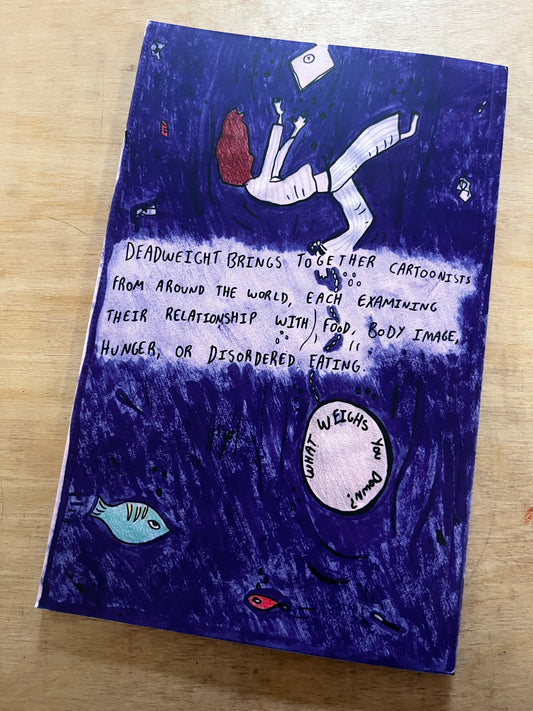 DEADWEIGHT BRINGS TOGETHER CARTOONISTS
FROM AROUND THE WORLD, EACH EXAMINING
THEIR RELATIONSHIP WITH FOOD, BODY IMAGE,
HUNGER, OR DISORDERED EATING.
WHAT WEIGHS YOU DOWN?